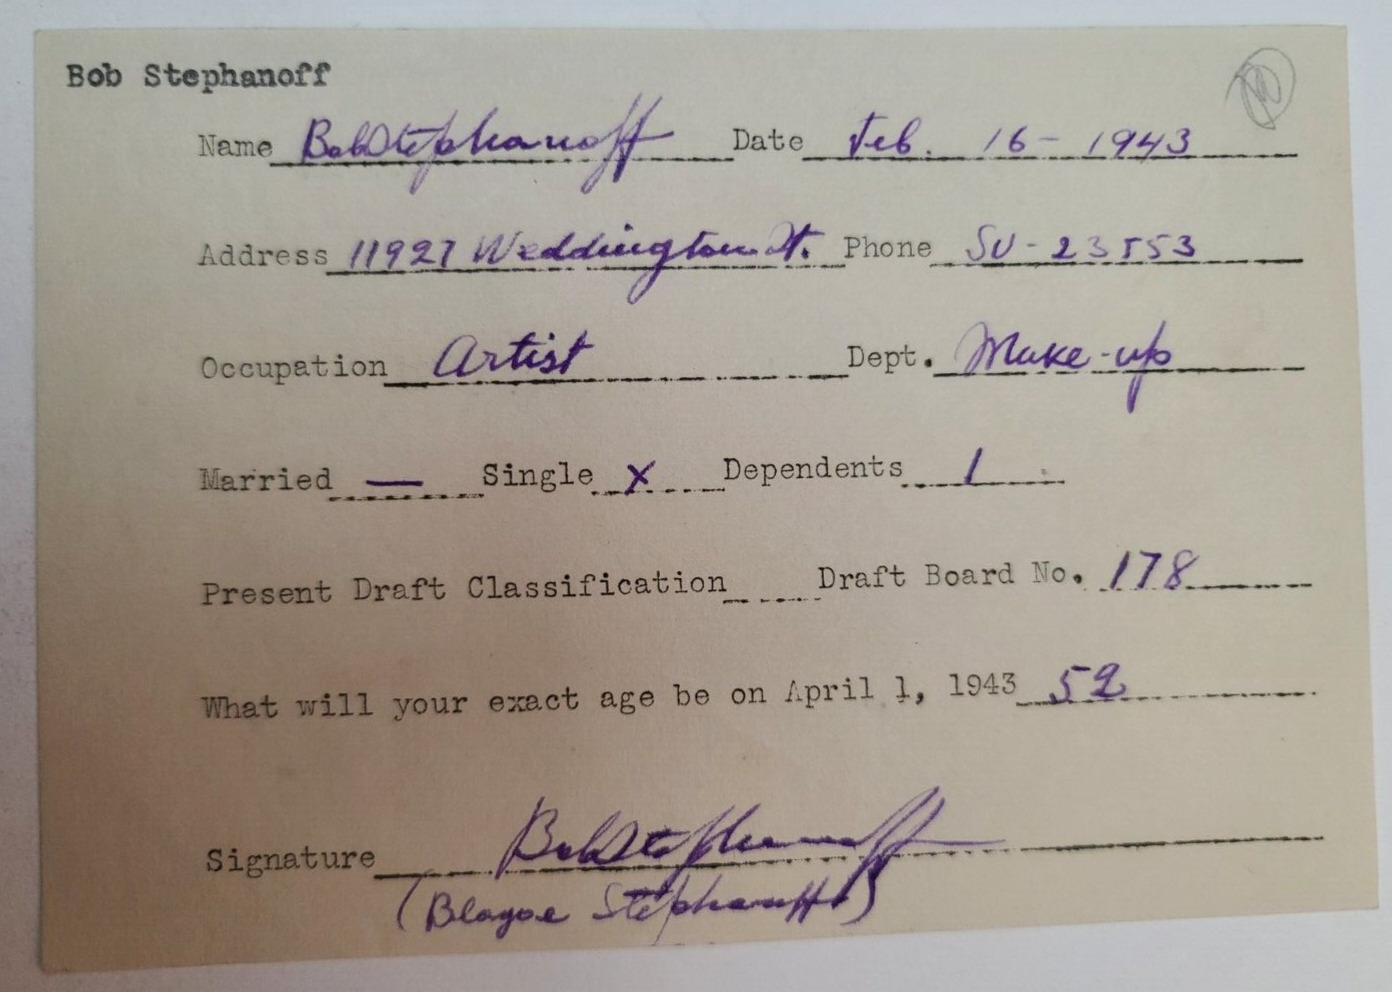 Bob Stephanoff
Name Bob Stephanoff Date Feb. 16 - 1943
Address 11927 Weddington St. Phone SU - 23553
Occupation Artist Dept. Make-up
Married — Single X Dependents 1
Present Draft Classification Draft Board No. 178
What will your exact age be on April 1, 1943 52
Signature Bob Stephanoff
(Blagoe Stephanoff)